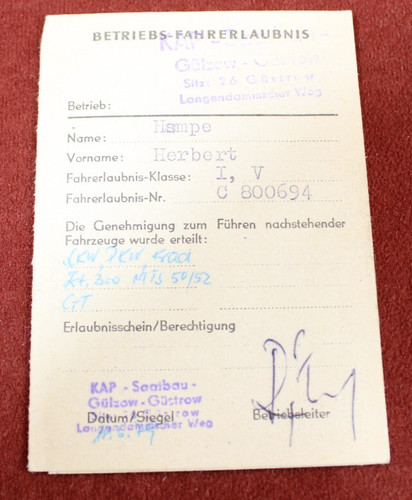 BETRIEBS-FAHRERLAUBNIS
KAP - Saatbau -
Gülzow - Güstrow
Sitz: 26 Güstrow
Langendammscher Weg
Betrieb:
Name: Hampe
Vorname: Herbert
Fahrerlaubnis-Klasse: I, V
Fahrerlaubnis-Nr. C 800694
Die Genehmigung zum Führen nachstehender
Fahrzeuge wurde erteilt:
LKW, PKW, Krad
Zt, 300 MTS 50/52
GT
Erlaubnisschein/Berechtigung
KAP - Saatbau -
Gülzow - Güstrow
Datum/Siegel Betriebsleiter
Langendammscher Weg